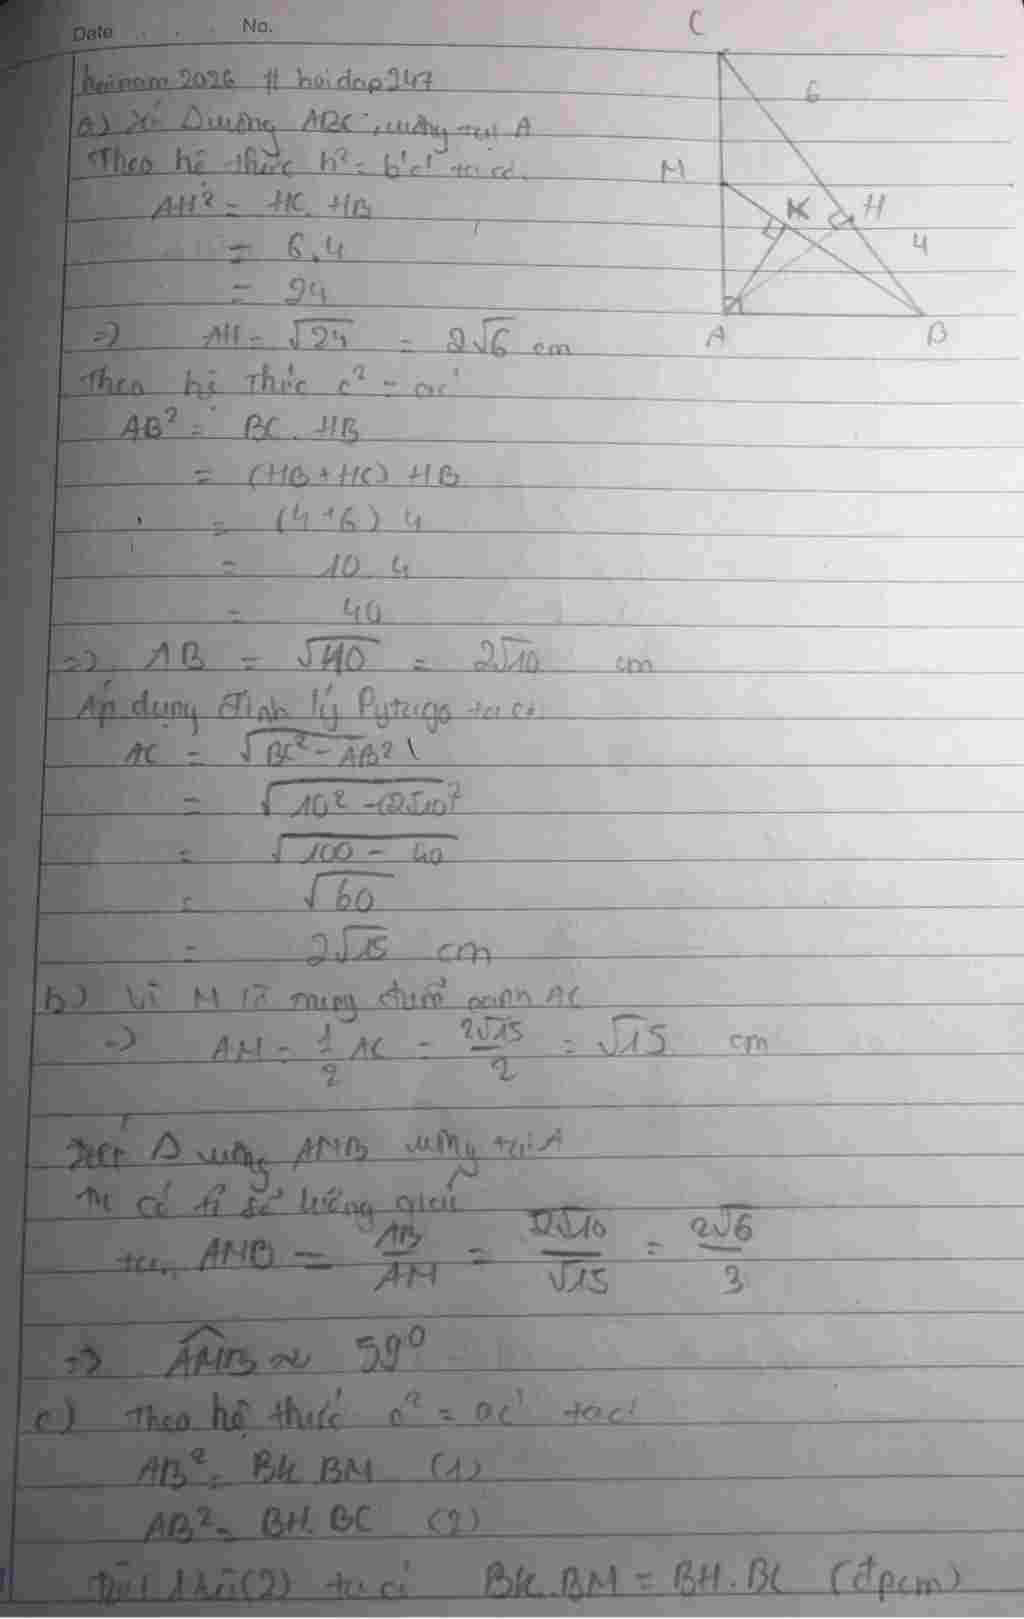 Date . . . No.
hainam2026 # hoidap247
a) Xét Δ vuông ABC, vuông tại A
Theo hệ thức h² = b'c' ta có.
AH² = HC. HB
= 6.4
= 24
=> AH = √24 = 2√6 cm
Theo hệ thức c² = ac'
AB² = BC. HB
= (HB + HC) HB
= (4+6) 4
= 10.4
= 40
=> AB = √40 = 2√10 cm
Áp dụng định lý Pytago ta có
AC = √BC² - AB²
= √10² - (2√10)²
= √100 - 40
= √60
= 2√15 cm
b) Vì M là trung điểm cạnh AC
=> AM = 1/2 AC = 2√15/2 = √15 cm
Xét Δ vuông AMB vuông tại A
Ta có tỉ số lượng giác
tan AMB = AB/AM = 2√10/√15 = 2√6/3
=> AMB ≈ 59°
c) Theo hệ thức c² = ac' ta có
AB² = BK BM (1)
AB² = BH. BC (2)
Từ 1 và (2) ta có BK.BM = BH.BC (đpcm)
C
6
M
K
H
4
A
B